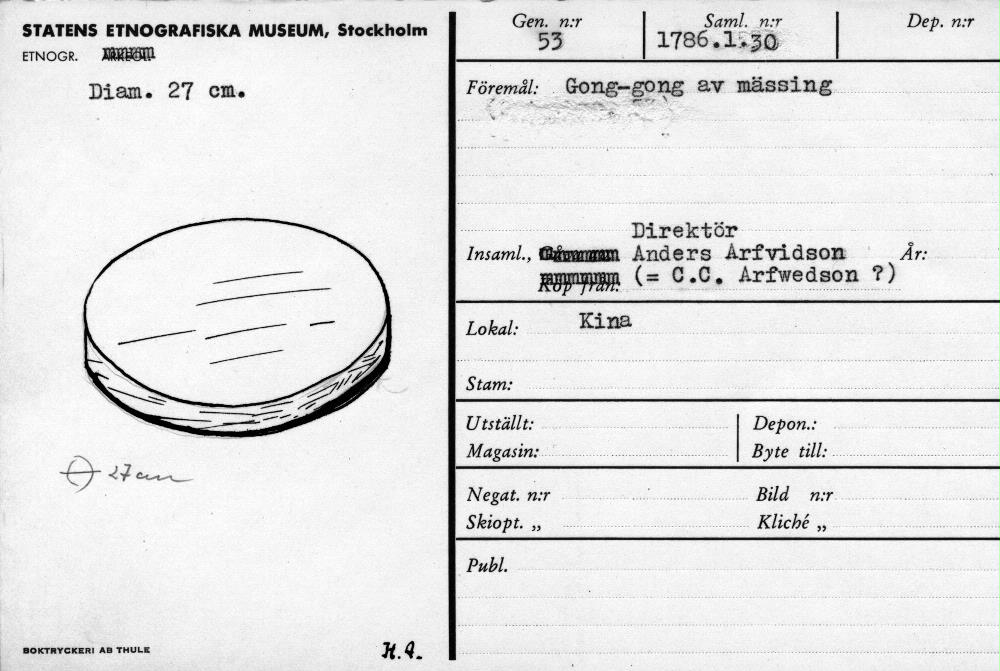 STATENS ETNOGRAFISKA MUSEUM, Stockholm
ETNOGR. ARKEOL.
Diam. 27 cm.
27 cm
BOKTRYCKERI AB THULE
Gen. n:r
53
Saml. n:r
1786.1.30
Dep. n:r
Föremål: Gong-gong av mässing
Direktör
Insaml., Anders Arfvidson År:
Köp från: (= C.C. Arfwedson ?)
Lokal: Kina
Stam:
Utställt: Depon.:
Magasin: Byte till:
Negat. n:r Bild n:r
Skiopt. „ Kliché „
Publ.